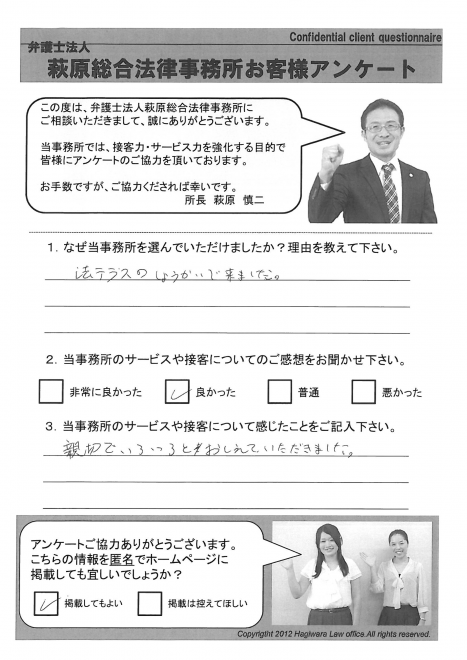 Confidential client questionnaire
弁護士法人
萩原総合法律事務所お客様アンケート
この度は、弁護士法人萩原総合法律事務所に
ご相談いただきまして、誠にありがとうございます。
当事務所では、接客力・サービス力を強化する目的で
皆様にアンケートのご協力を頂いております。
お手数ですが、ご協力くだされば幸いです。
所長 萩原 慎二
1．なぜ当事務所を選んでいただけましたか？理由を教えて下さい。
法テラスのしょうかいで来ました。
2．当事務所のサービスや接客についてのご感想をお聞かせ下さい。
非常に良かった 良かった 普通 悪かった
3．当事務所のサービスや接客について感じたことをご記入下さい。
親切でいろいろとおしえていただきました。
アンケートご協力ありがとうございます。
こちらの情報を匿名でホームページに
掲載しても宜しいでしょうか？
掲載してもよい 掲載は控えてほしい
Copyrigtht 2012 Hagiwara Law office.All rights reserved.